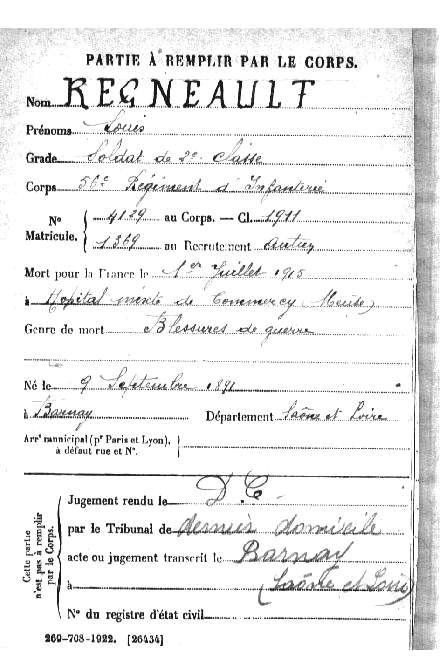 PARTIE À REMPLIR PAR LE CORPS.
Nom REGNEAULT
Prénoms Louis
Grade Soldat de 2e Classe
Corps 56e Régiment d'Infanterie
Nº Matricule. { 4129 au Corps. — Cl. 1911
1369 au Recrutement Autun
Mort pour la France le 1er Juillet 1915
à Hopital mixte de Commercy (Meuse)
Genre de mort Blessures de guerre
Né le 9 Septembre 1891
à Barnay Département Saône et Loire
Arrt municipal (pr Paris et Lyon),
à défaut rue et Nº.
Cette partie n'est pas à remplir par le Corps.
Jugement rendu le D C
par le Tribunal de dernier domicile
acte ou jugement transcrit le Barnay
à (Saône et Loire)
Nº du registre d'état civil
269-708-1922. [26434]